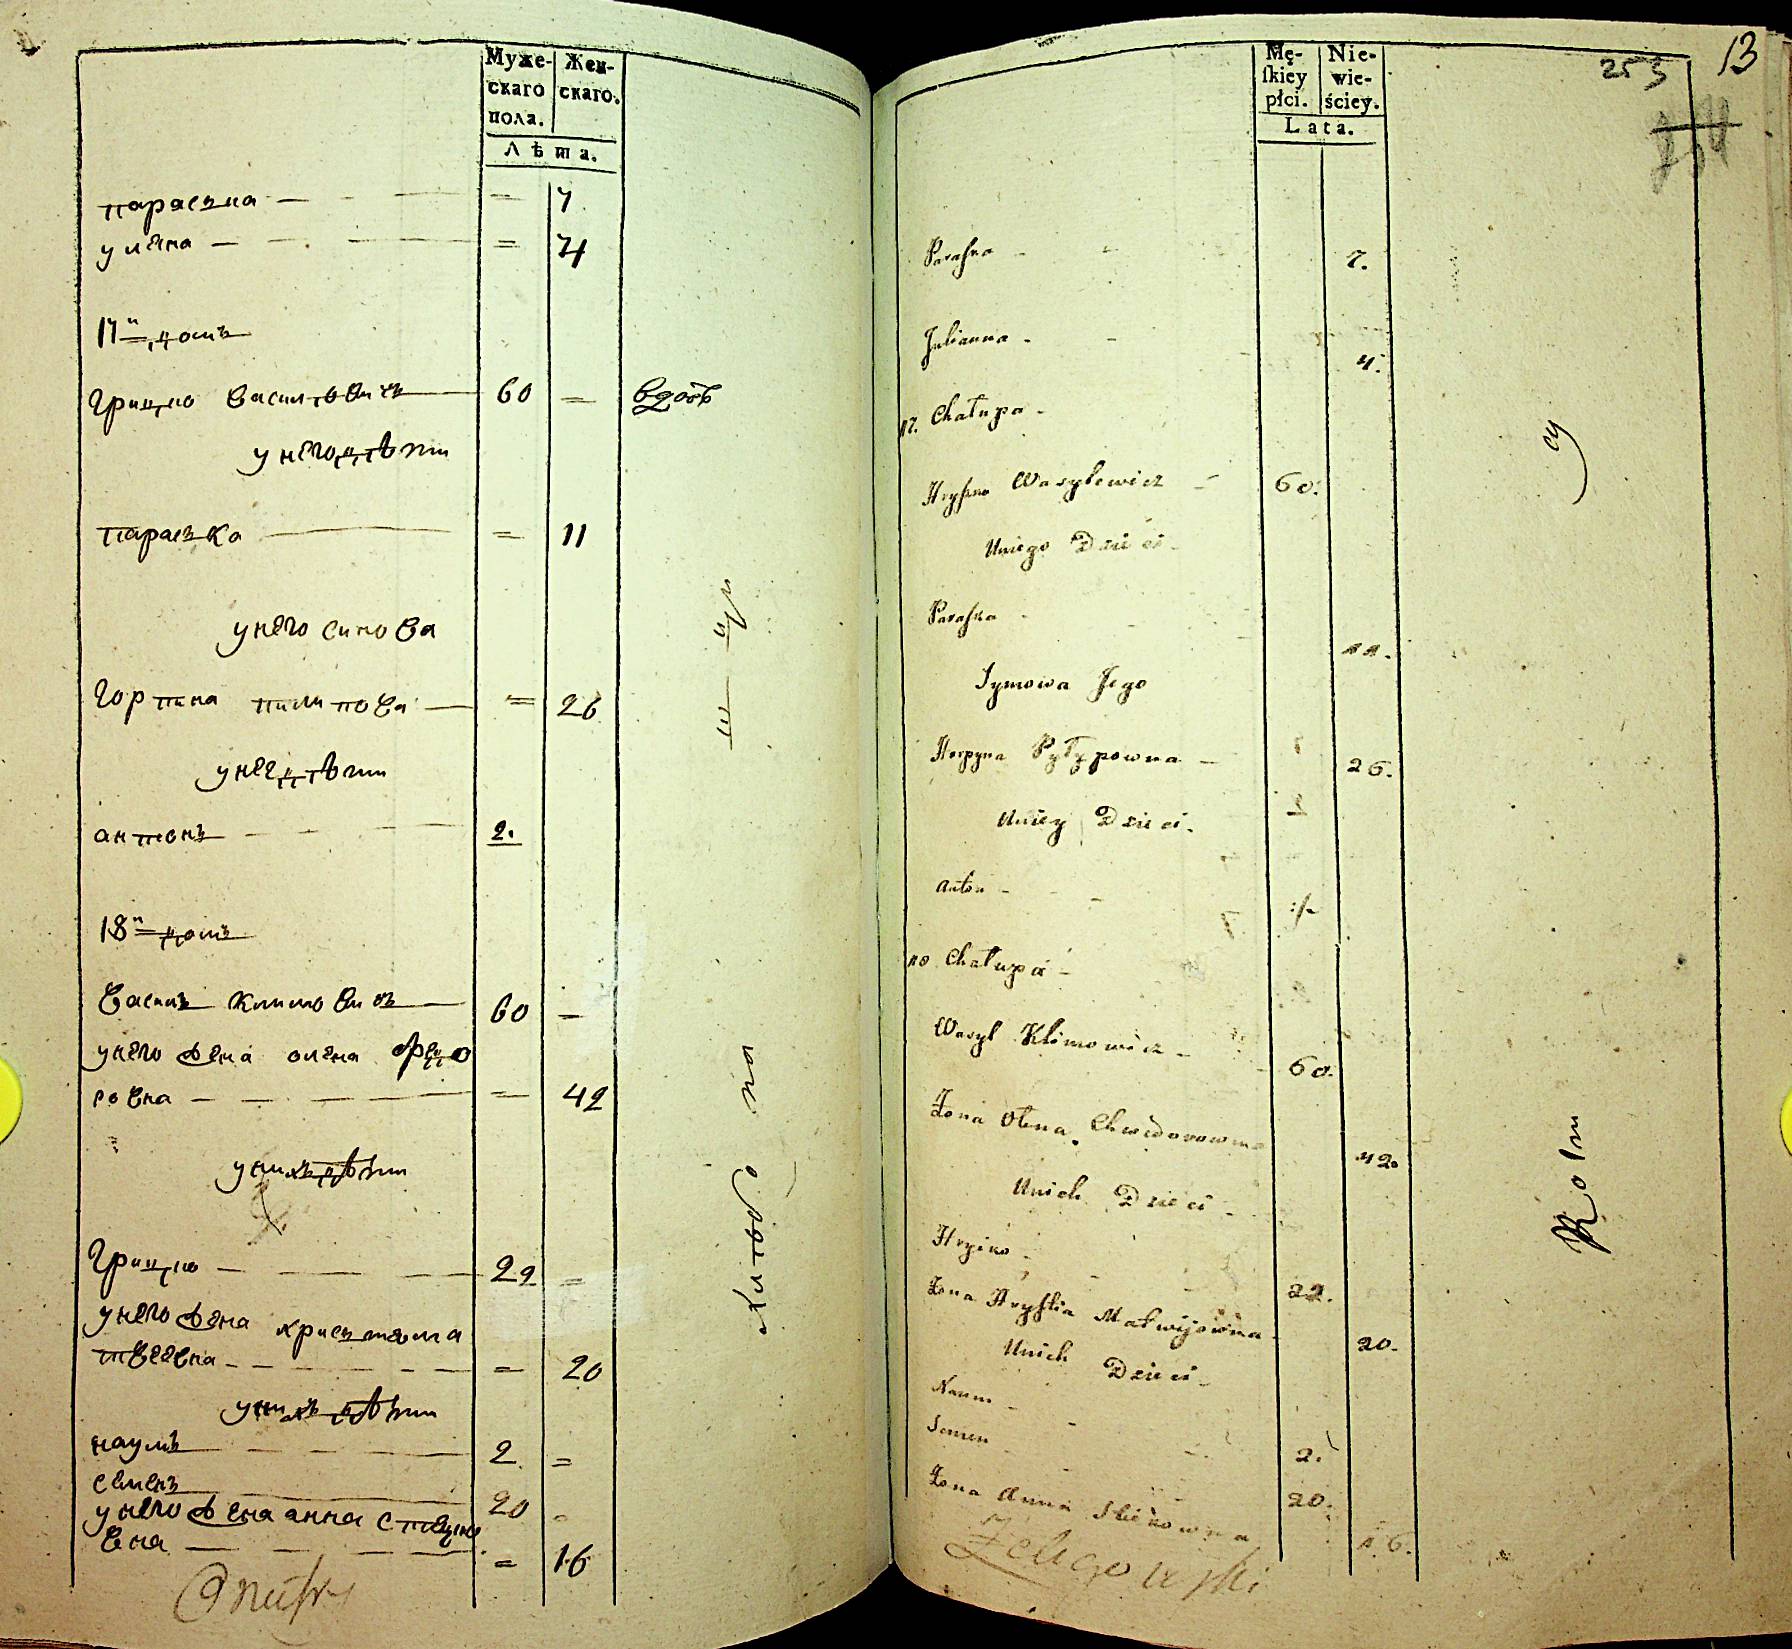 Муже-
скаго
пола.
Жен-
скаго.
Лѣта.
параска — — — = 7
улена — — — = 4
17й домъ
грицко василовичъ 60 — вдовъ
у него дѣти
параска — = 11
у него синова
горпина пилипова — = 26
у нее дѣти
антонъ — — — 2.
18й домъ
василь климовичъ — 60 —
у него жена олена федо
ровна — — — = 42
у нихъ дѣти
грицко — — — 22 =
у него жена христя ма
твеевна — — — = 20
у нихъ дѣти
наумъ — — — 2 =
семенъ 20
у него жена анна стецко
вна — — — = 16
Mę-
ſkiey
płci.
Nie-
wie-
ściey.
Lata.
253
13
Paraſka - - 7.
Julianna - - 4.
17. Chałupa -
Hryſzko Wasylewicz - 60.
Uniego Dzieci -
Paraſka - 11.
Synowa Jego
Horpyna Pyłypowna - 26.
Uniey Dzieci.
Anton - - 2
18 Chałupa -
Wasyl Klimowicz - 60.
Żona Ołena Chwedorowna 42.
Unich Dzieci -
Hryćko - 22.
Żona Hryſtia Matwijowna - 20.
Unich Dzieci -
Naum - 2.
Semen 20.
Żona Anna Stećkowna 16.